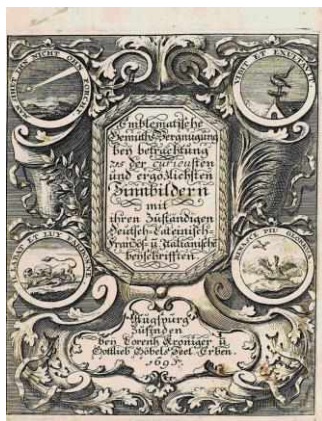 VIDIT ET EXULTAVIT
Emblematische
Gemüths-Vergnügung
bey betrachtung
715 der curieusten
und ergözlichsten
Sinnbildern
mit
ihren Zuständigen
Deutsch-Lateinisch-
Französ- u. Italianische
beyschrifften.
ET LUY PARDONNE
PIU
Augspurg
Zufinden
bey Lorenz Kroniger u.
Gottlieb Göbels Seel. Erben.
1695.